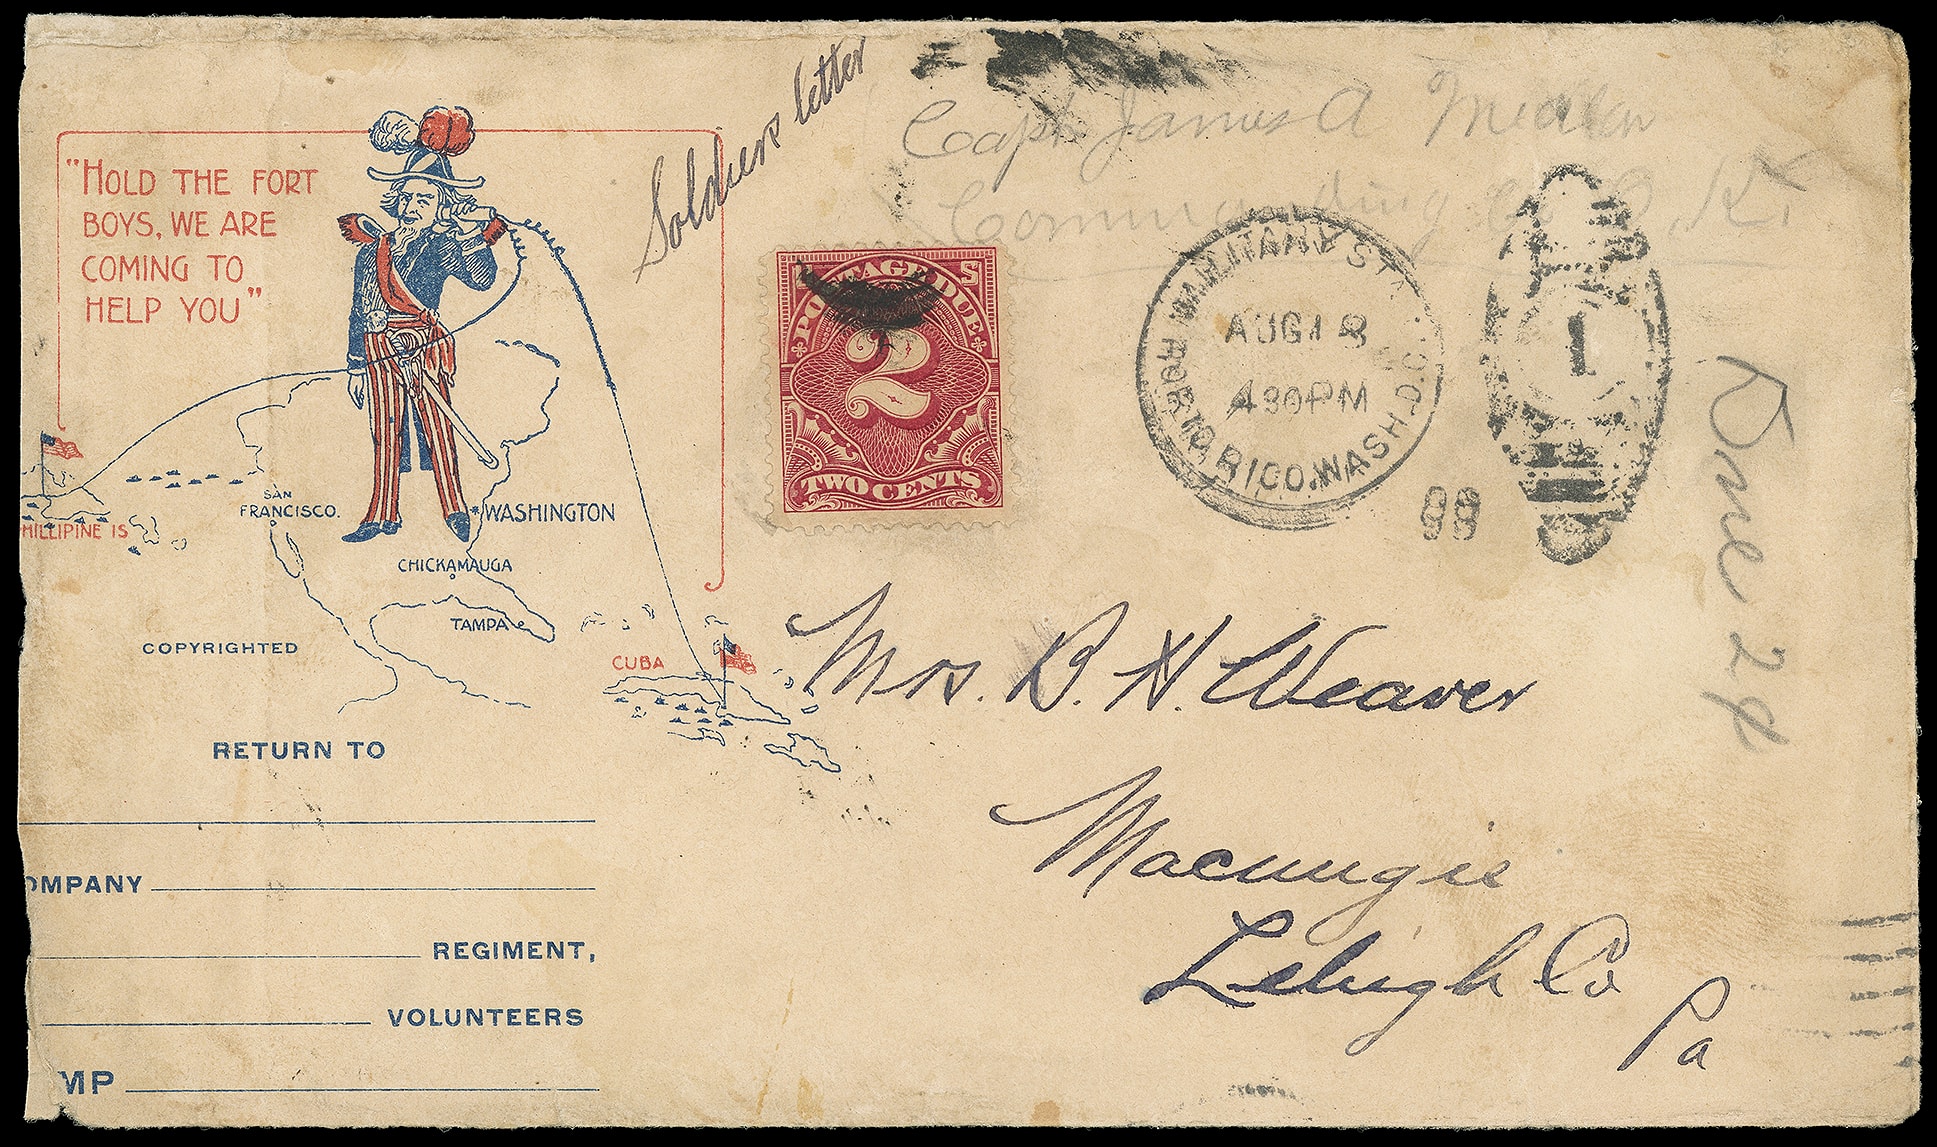 "HOLD THE FORT
BOYS, WE ARE
COMING TO
HELP YOU"
Soldiers letter
Capt James A
Commanding Co
POSTAGE DUE
2
TWO CENTS
MILITARY STA.
AUG 18
4 30 PM
PORTO RICO, WASH. D.C.
98
1
Due 2¢
SAN
FRANCISCO.
WASHINGTON
HILLIPINE IS
CHICKAMAUGA
TAMPA
COPYRIGHTED
CUBA
Mrs. B. H. Weaver
Macungie
Lehigh Co
Pa
RETURN TO
OMPANY
REGIMENT,
VOLUNTEERS
MP